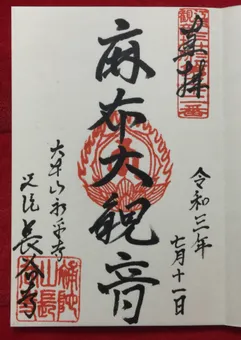 奉拝
令和三年
七月十一日
麻布大観音
大本山永平寺
別院 長谷寺